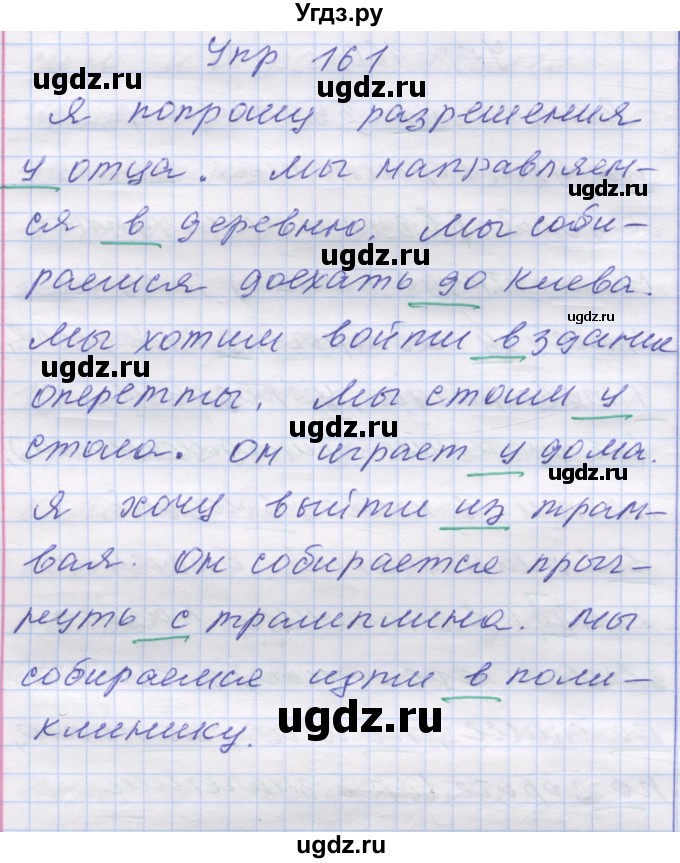 Угдз.ру
Упр 161
ugdz.ru
ugdz.ru
Я попрошу разрешения
у отца. Мы направляем-
ugdz.ru
ся в деревню. Мы соби-
ugdz.ru
раемся доехать до Киева.
ugdz.ru
Мы хотим войти в здание
ugdz.ru
оперетты. Мы стоим у
ugdz.ru
стола. Он играет у дома.
ugdz.ru
Я хочу выйти из трам-
вая. Он собирается прыг-
нуть с трамплина. Мы
собираемся идти в поли-
клинику.
ugdz.ru
ugdz.ru
ugdz.ru